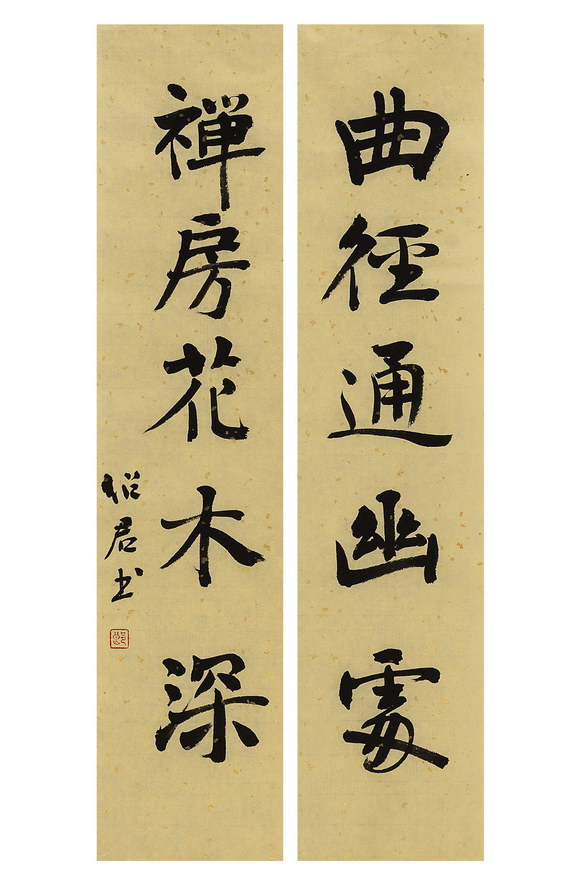 曲徑通幽處
禪房花木深
君书